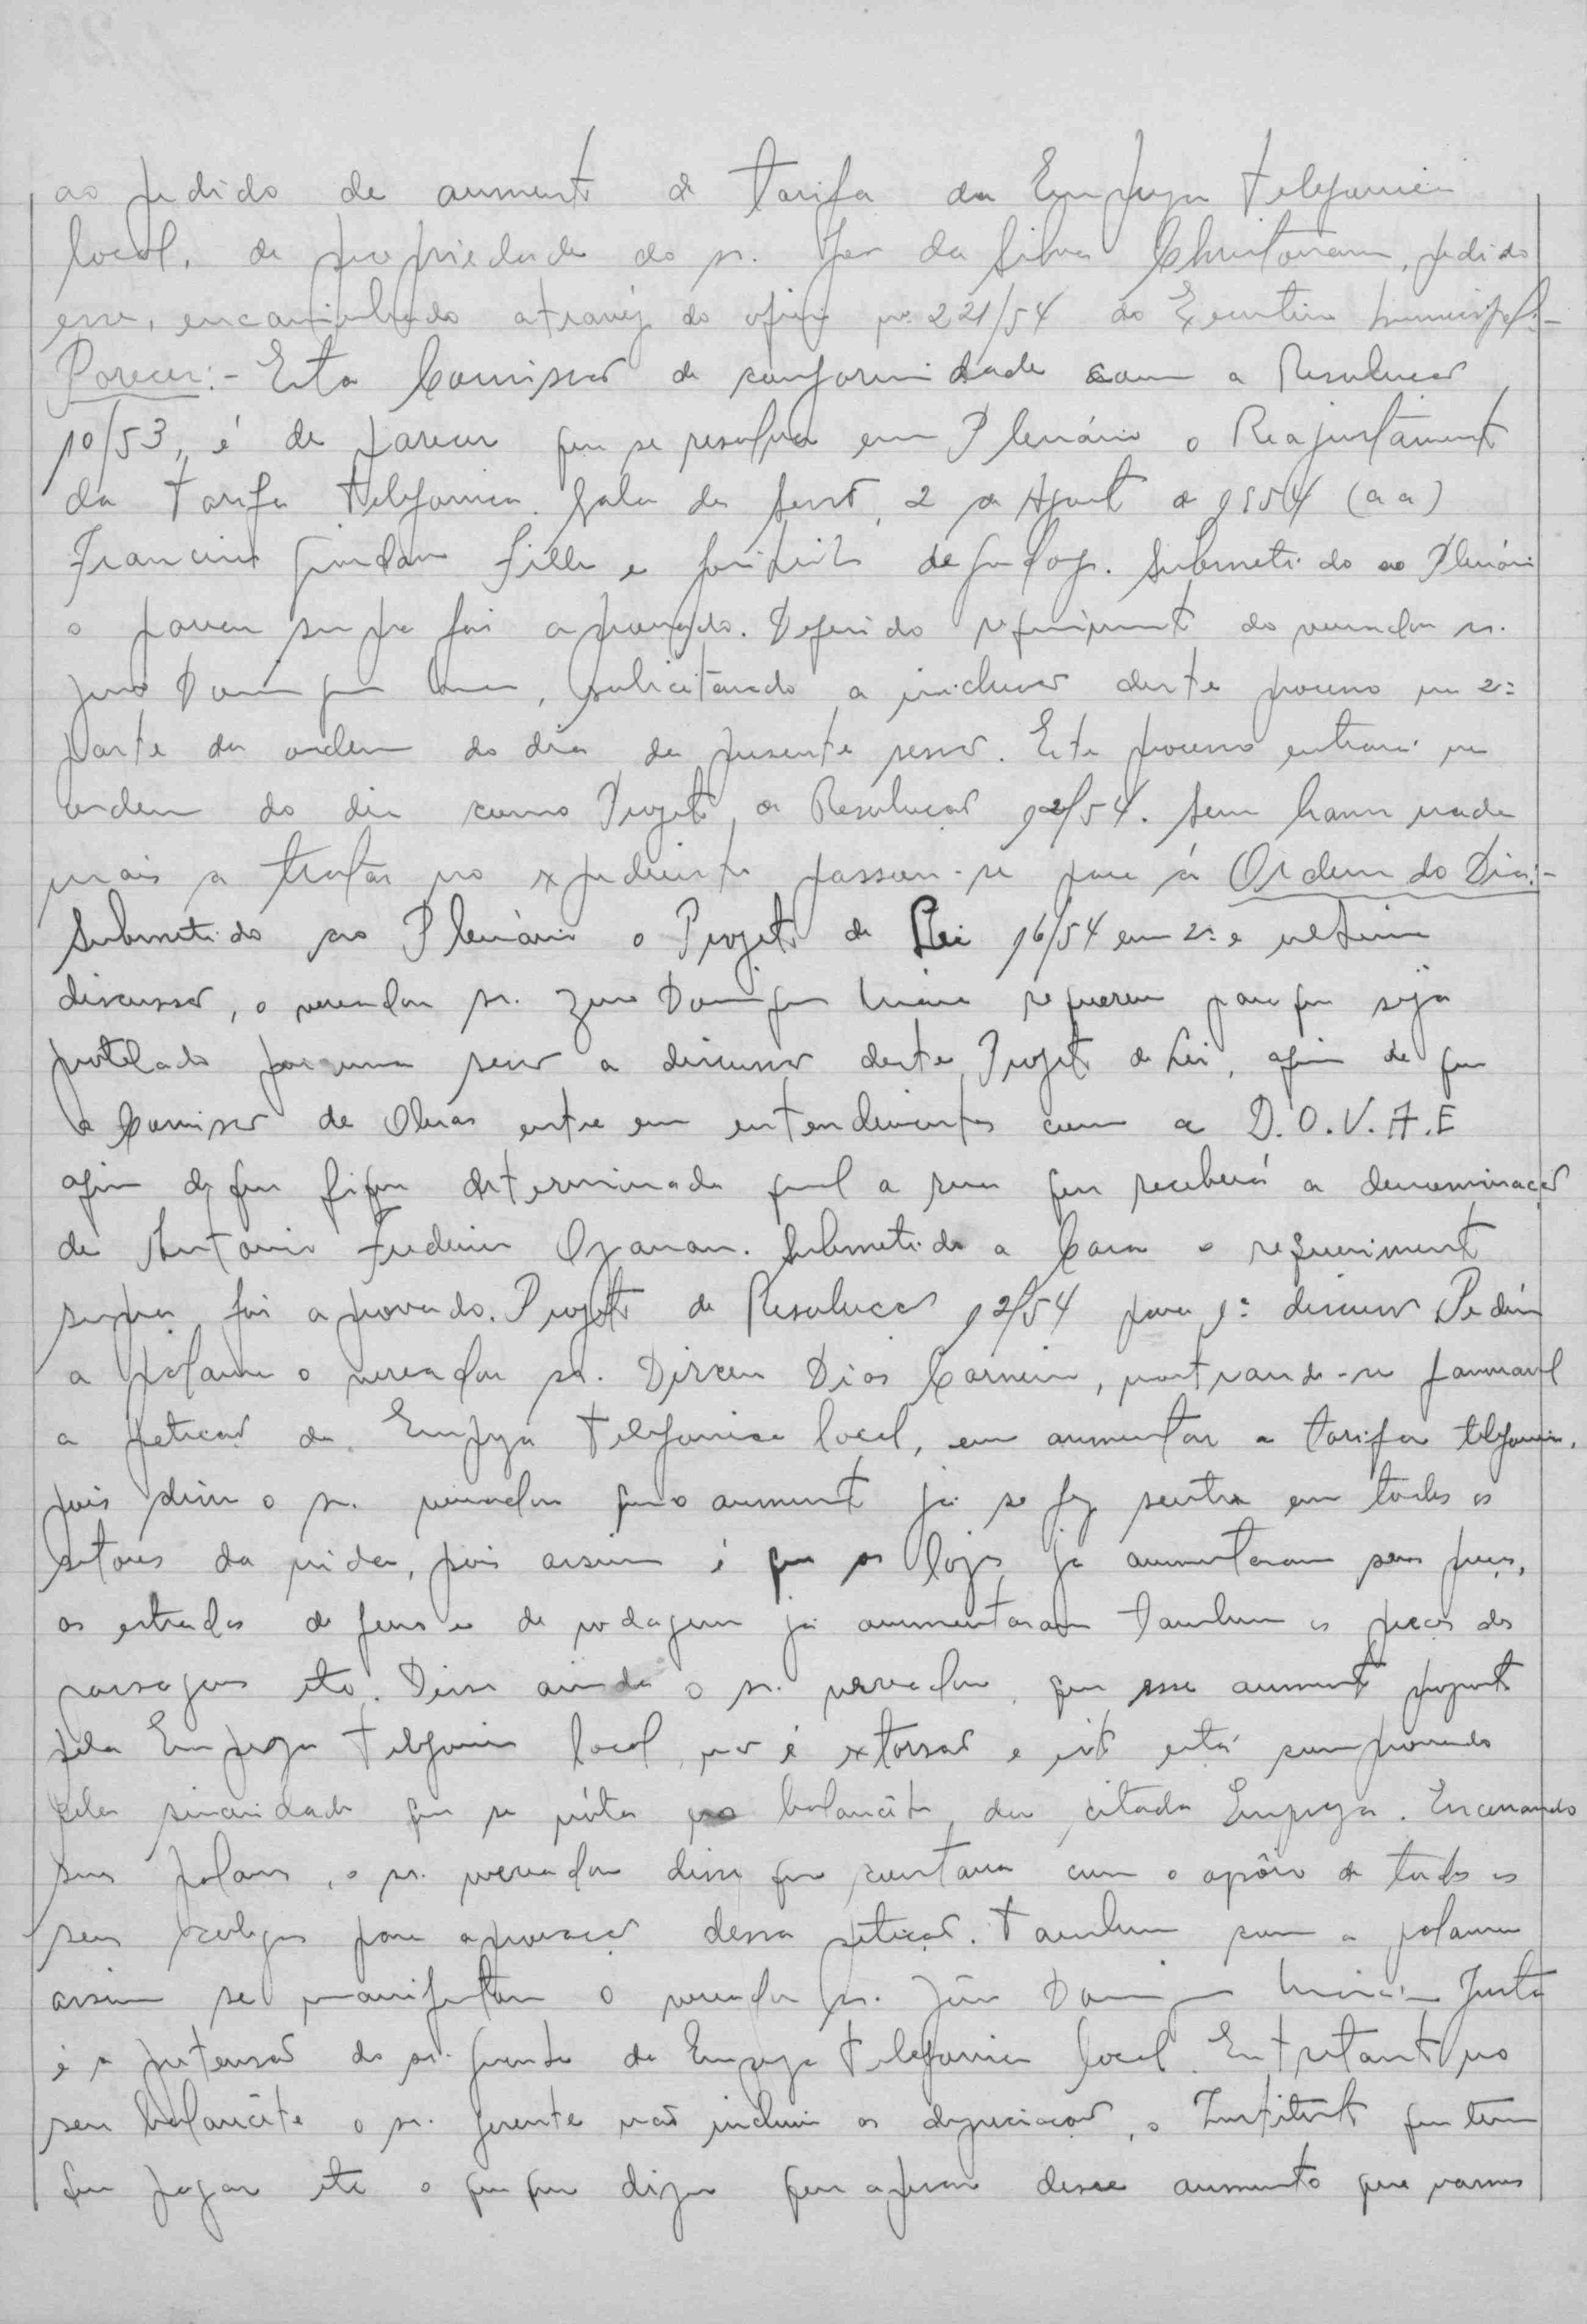 ao pedido de aumento de tarifa da Empreza Telefonica
local, de propriedade do sr. da Silva Christovam, pedido
esse, encaminhado atravéz do oficio nº 221/54 do Executivo Municipal.-
Parecer:- Esta Comissão de conformidade com a Resolucao
10/53, é de parecer que se resolva em Plenário o Reajustamento
da Tarifa Telefonica. Sala da Sessão, 2 de Agosto de 1954 (aa)
Francisco Filho e de Godoy. Submetido ao Plenário
o parecer supra foi aprovado. Deferido requerimento do vereador sr.
Domingues, solicitando a inclusão deste processo na 2ª
parte da ordem do dia da presente sessão. Este processo entrará na
ordem do dia como Projeto de Resolucao 12/54. Sem haver nada
mais a tratar no expediente passou-se para á Ordem do Dia:-
Submetido ao Plenário o Projeto de Lei 16/54 em 2ª e ultima
discussão, o vereador sr. Domingues requereu para que seja
protelado por uma sessão a discussão deste Projeto de Lei, afim de que
a Comissão de Obras entre em entendimentos com a D.O.V.A.E
afim de que fique determinada qual a rua que receberá a denominação
de Antonio Frederico Ozanan. Submetido a Casa o requerimento
supra foi aprovado. Projeto de Resolucao 12/54 para 1ª discussão Pediu
a palavra o vereador sr. Dirceu Dias Carneiro, mostrando-se favoravel
a petição da Empreza Telefonica local, em aumentar a tarifa telefonica,
pois disse o sr. vereador que o aumento já se fez sentir em todos os
setores da vida, pois assim é que as lojas já aumentaram seus preços,
as estradas de ferro e de rodagem já aumentaram tambem os preços das
passagens etc. Disse ainda o sr. vereador, que esse aumento proposto
pela Empreza Telefonica local, não é extorsão e isto está comprovado
pela sinceridade que se nóta no balancête da citada Empreza. Encerrando
suas palavras, o sr. vereador disse que contava com o apôio de todos os
seus colegas para aprovação dessa petição. Tambem com a palavra
assim se manifestou o vereador sr. Domingues Justa
é a pretensão do sr. gerente da Empreza Telefonica local. Entretanto no
seu balancête o sr. gerente não incluiu as depreciação, o Instituto que tem
que pagar etc o que quer dizer que apesar desse aumento que vamos